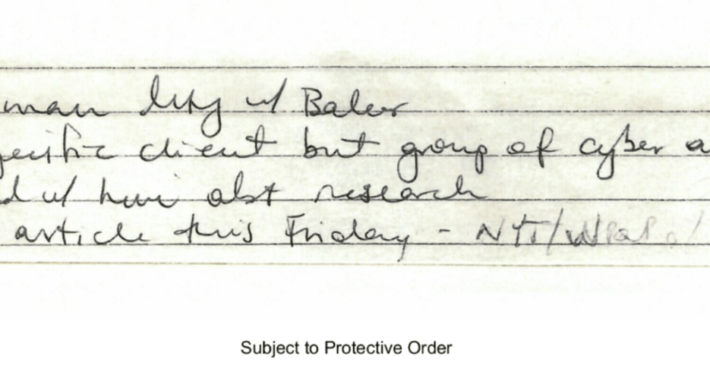 man mtg w/ Baker
pecific client but group of cyber a
d w/ him abt research
article this Friday - NYT/WaPo/
Subject to Protective Order